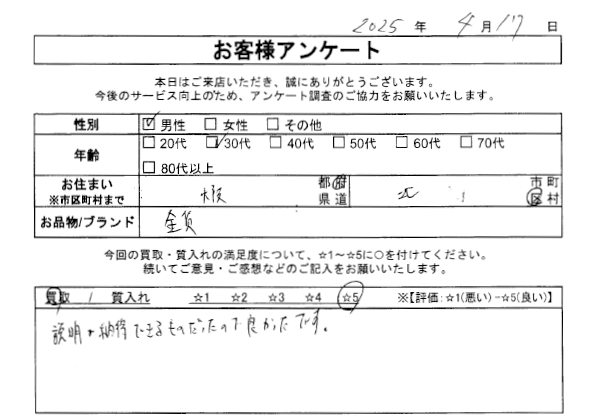 2025 年 4 月 17 日
お客様アンケート
本日はご来店いただき、誠にありがとうございます。
今後のサービス向上のため、アンケート調査のご協力をお願いいたします。
性別 ☑ 男性 □ 女性 □ その他
年齢 □ 20代 ☑ 30代 □ 40代 □ 50代 □ 60代 □ 70代
□ 80代以上
お住まい ※市区町村まで 大阪 都府県道 北 市町区村
お品物/ブランド 金貨
今回の買取・質入れの満足度について、☆1～☆5に○を付けてください。
続いてご意見・ご感想などのご記入をお願いいたします。
買取 / 質入れ ☆1 ☆2 ☆3 ☆4 ☆5 ※【評価:☆1(悪い)-☆5(良い)】
説明が納得できるものだったので良かったです。